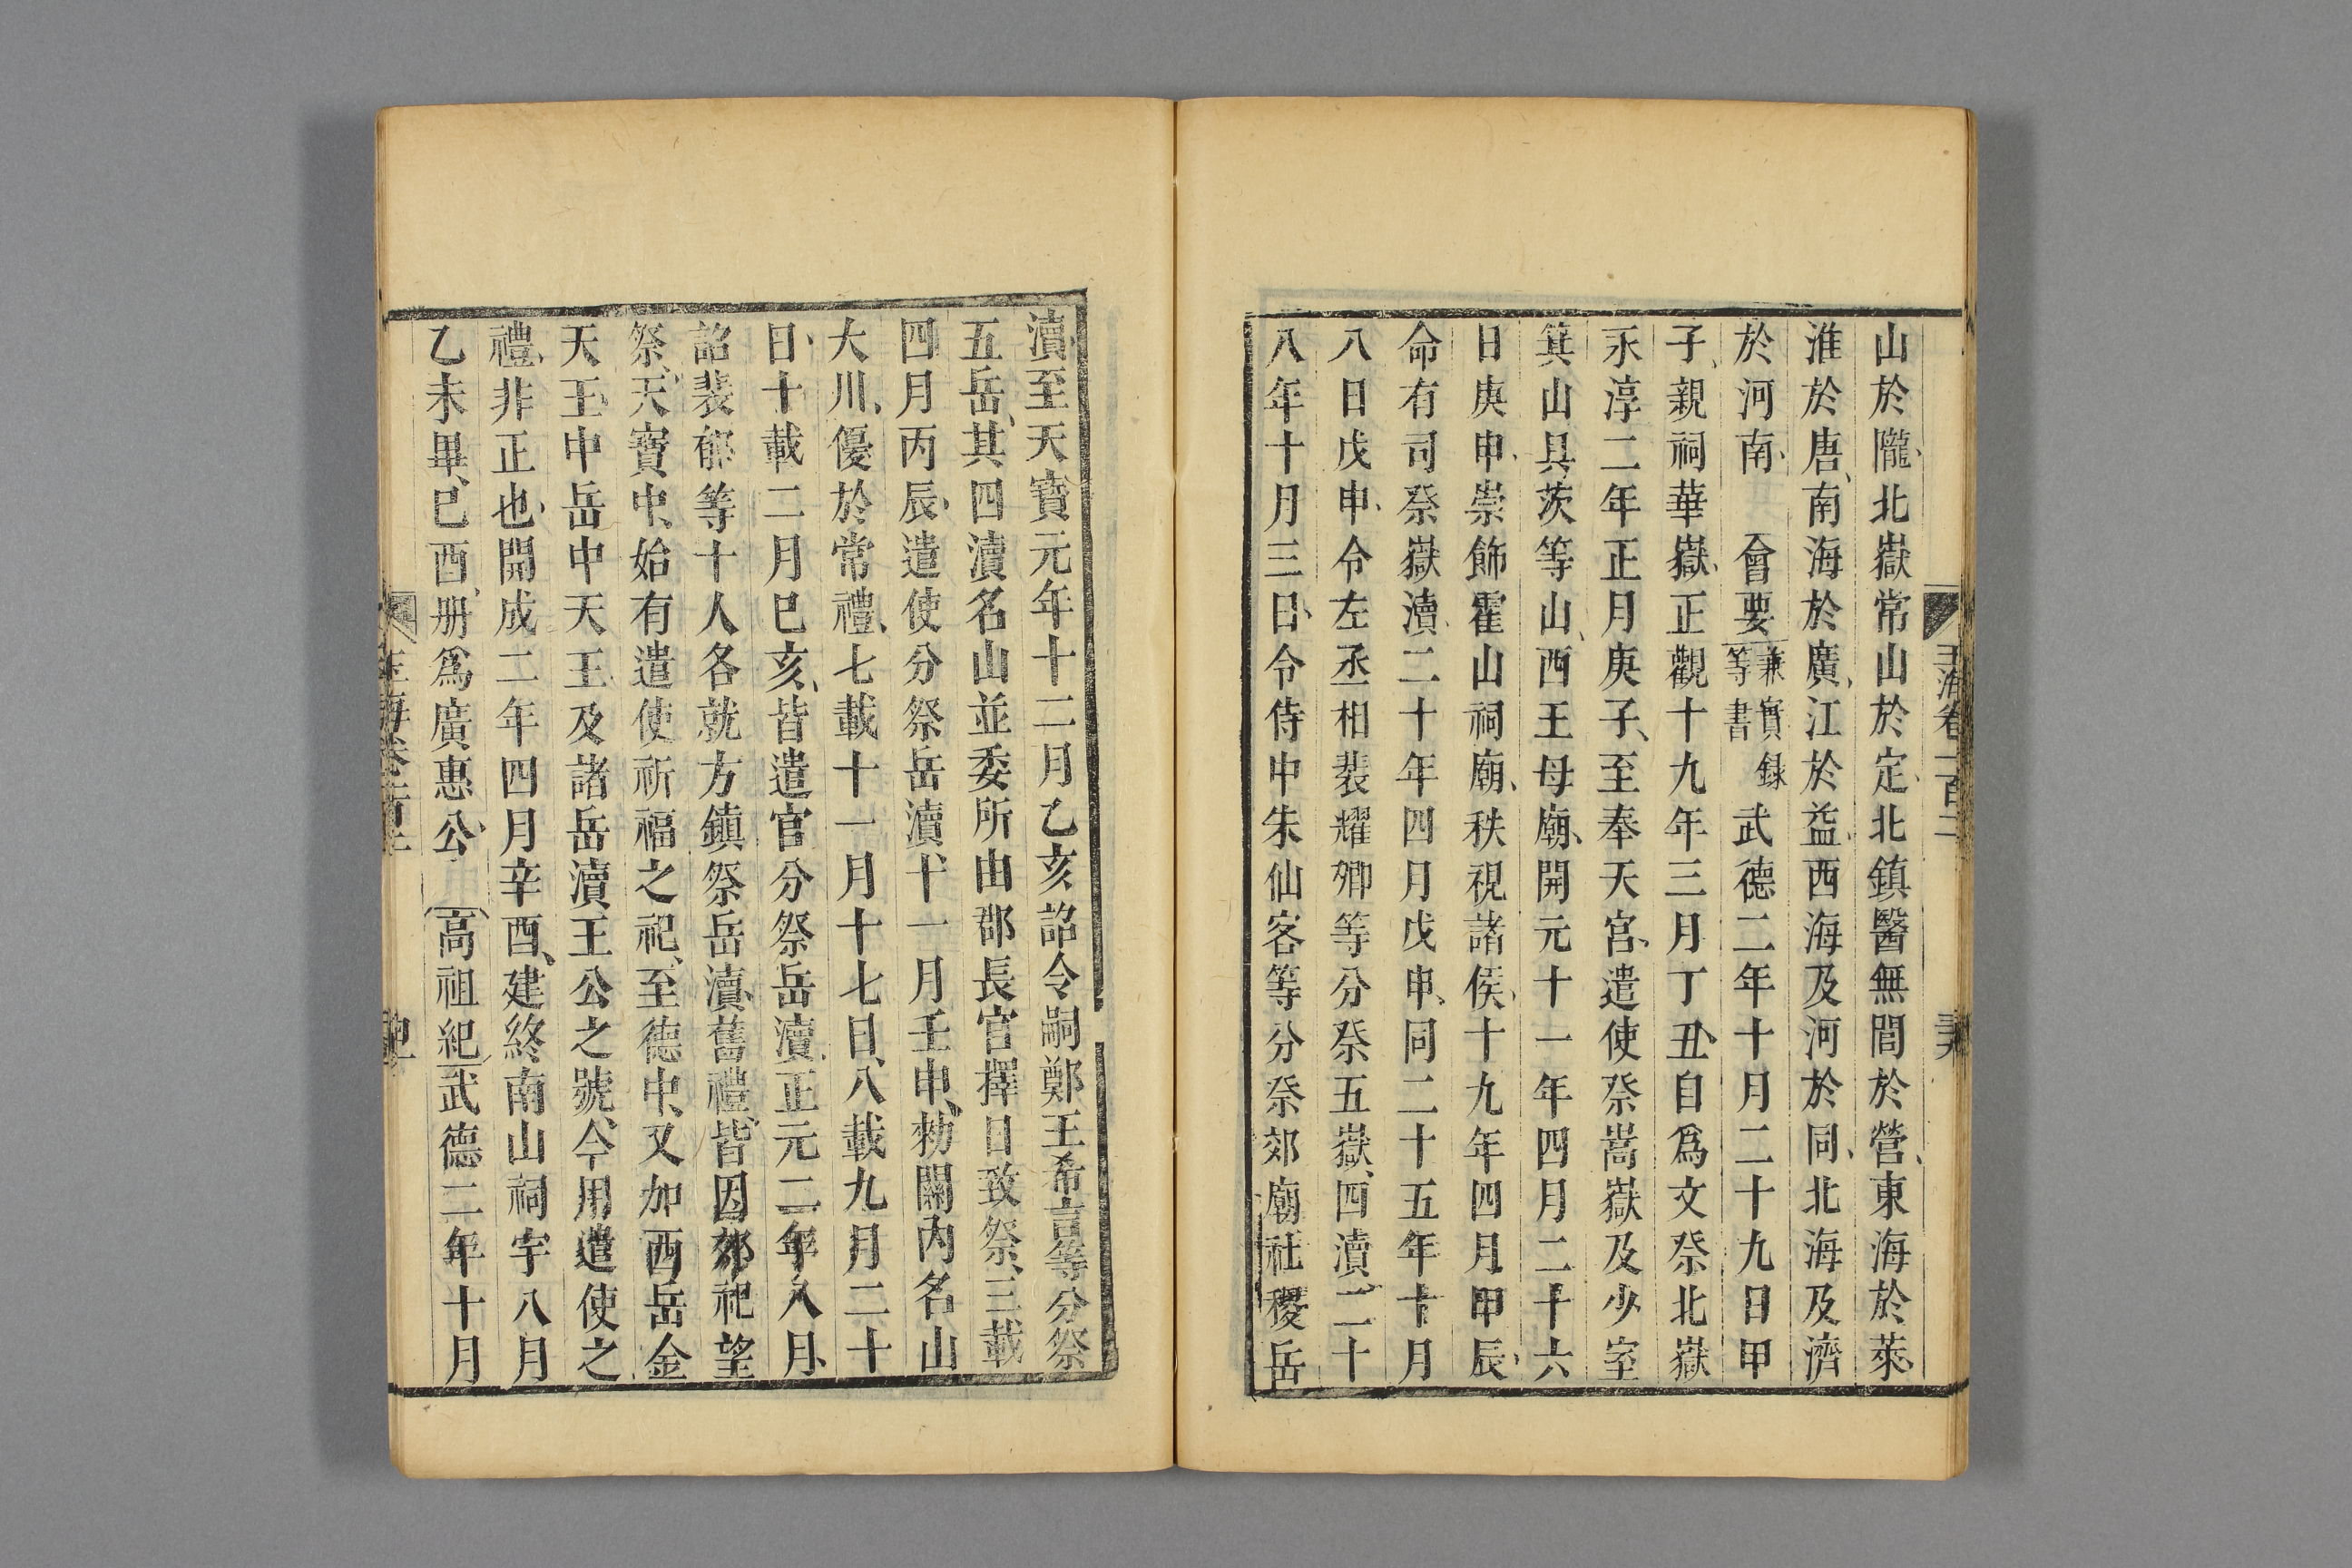 山於隴北嶽常山於定北鎮醫無閭於營東海於萊
淮於唐南海於廣江於益西海及河於同北海及濟
於河南　會要兼實録等書武德二年十月二十九日甲
子親祠華嶽正觀十九年三月丁丑自爲文祭北嶽
永淳二年正月庚子至奉天宮遣使祭嵩嶽及少室
箕山具茨等山西王母廟開元十一年四月二十六
日庚申崇飾霍山祠廟秩視諸侯十九年四月甲辰
命有司祭嶽瀆二十年四月戊申同二十五年十月
八日戊申令左丞相裴耀卿等分祭五嶽四瀆二十
八年十月三日令侍中朱仙客等分祭郊廟社稷岳
玉海卷一百二
瀆至天寶元年十二月乙亥詔令嗣鄭王希言等分祭
五岳其四瀆名山並委所由郡長官擇日致祭三載
四月丙辰遣使分祭岳瀆十一月壬申勑關內名山
大川優於常禮七載十一月十七日八載九月二十
日十載二月巳亥皆遣官分祭岳瀆正元二年八月
詔裴郁等十人各就方鎮祭岳瀆舊禮皆因郊祀望
祭天寶中始有遣使祈福之祀至德中又加西岳金
天王中岳中天王及諸岳瀆王公之號今用遣使之
禮非正也開成二年四月辛酉建終南山祠宇八月
乙未畢巳酉册爲廣惠公　高祖紀武德二年十月